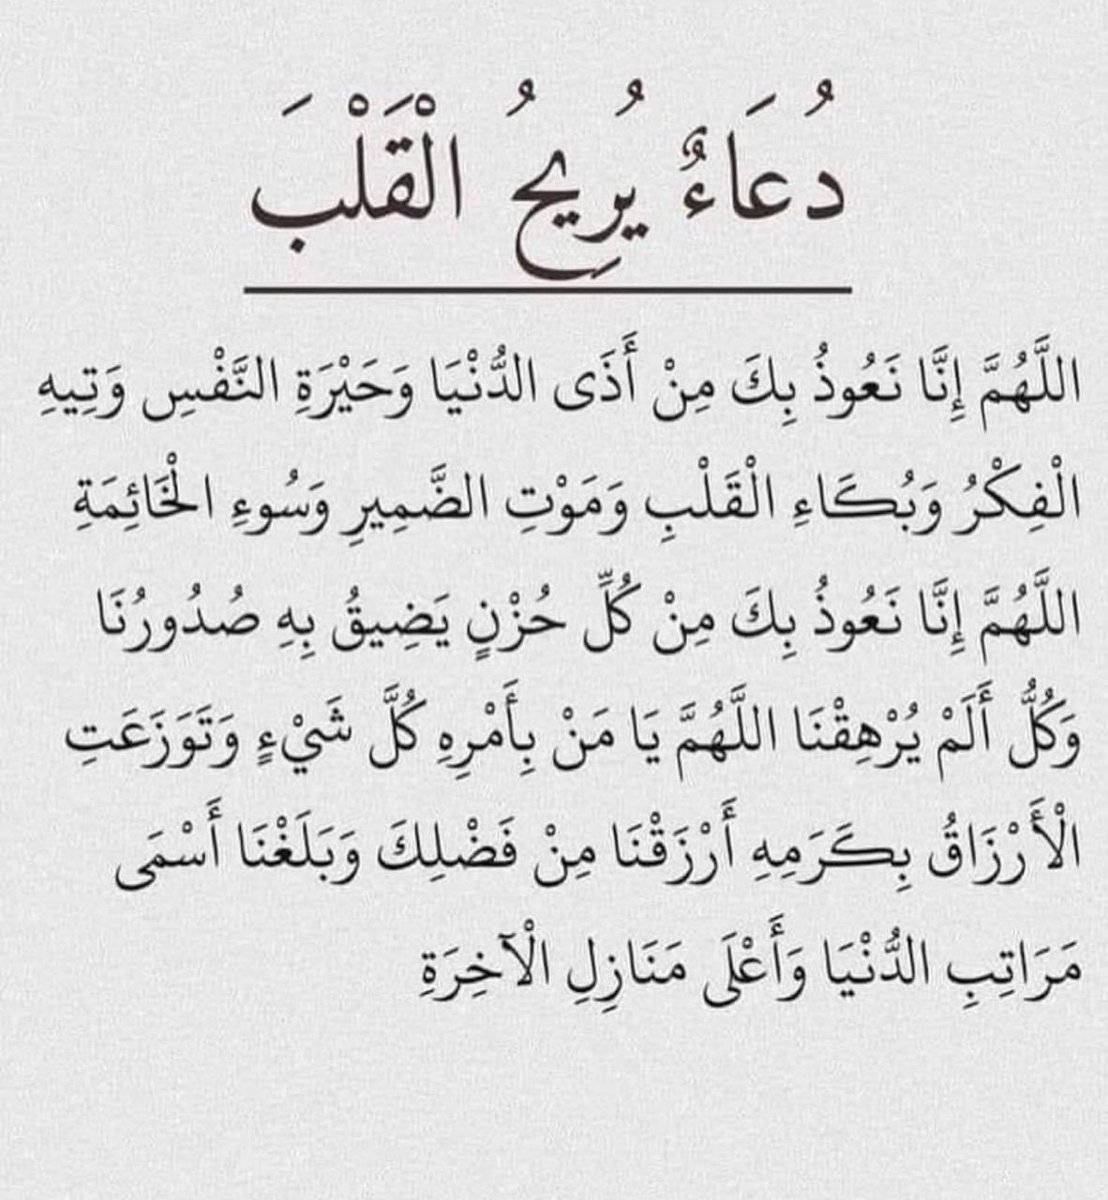 دُعَاءٌ يُرِيحُ الْقَلْبَ
اللَّهُمَّ إِنَّا نَعُوذُ بِكَ مِنْ أَذَى الدُّنْيَا وَحَيْرَةِ النَّفْسِ وَتِيهِ
الْفِكْرُ وَبُكَاءِ الْقَلْبِ وَمَوْتِ الضَّمِيرِ وَسُوءِ الْخَائِمَةِ
اللَّهُمَّ إِنَّا نَعُوذُ بِكَ مِنْ كُلِّ حُزْنٍ يَضِيقُ بِهِ صُدُورُنَا
وَكُلُّ أَلَمْ يُرْهِقْنَا اللَّهُمَّ يَا مَنْ بِأَمْرِهِ كُلَّ شَيْءٍ وَتَوَزَعَتِ
الْأَرْزَاقُ بِكَرَمِهِ أَرْزَقْنَا مِنْ فَضْلِكَ وَبَلَغْنَا أَسْمَى
مَرَاتِبِ الدُّنْيَا وَأَعْلَى مَنَازِلِ الْآخِرَةِ